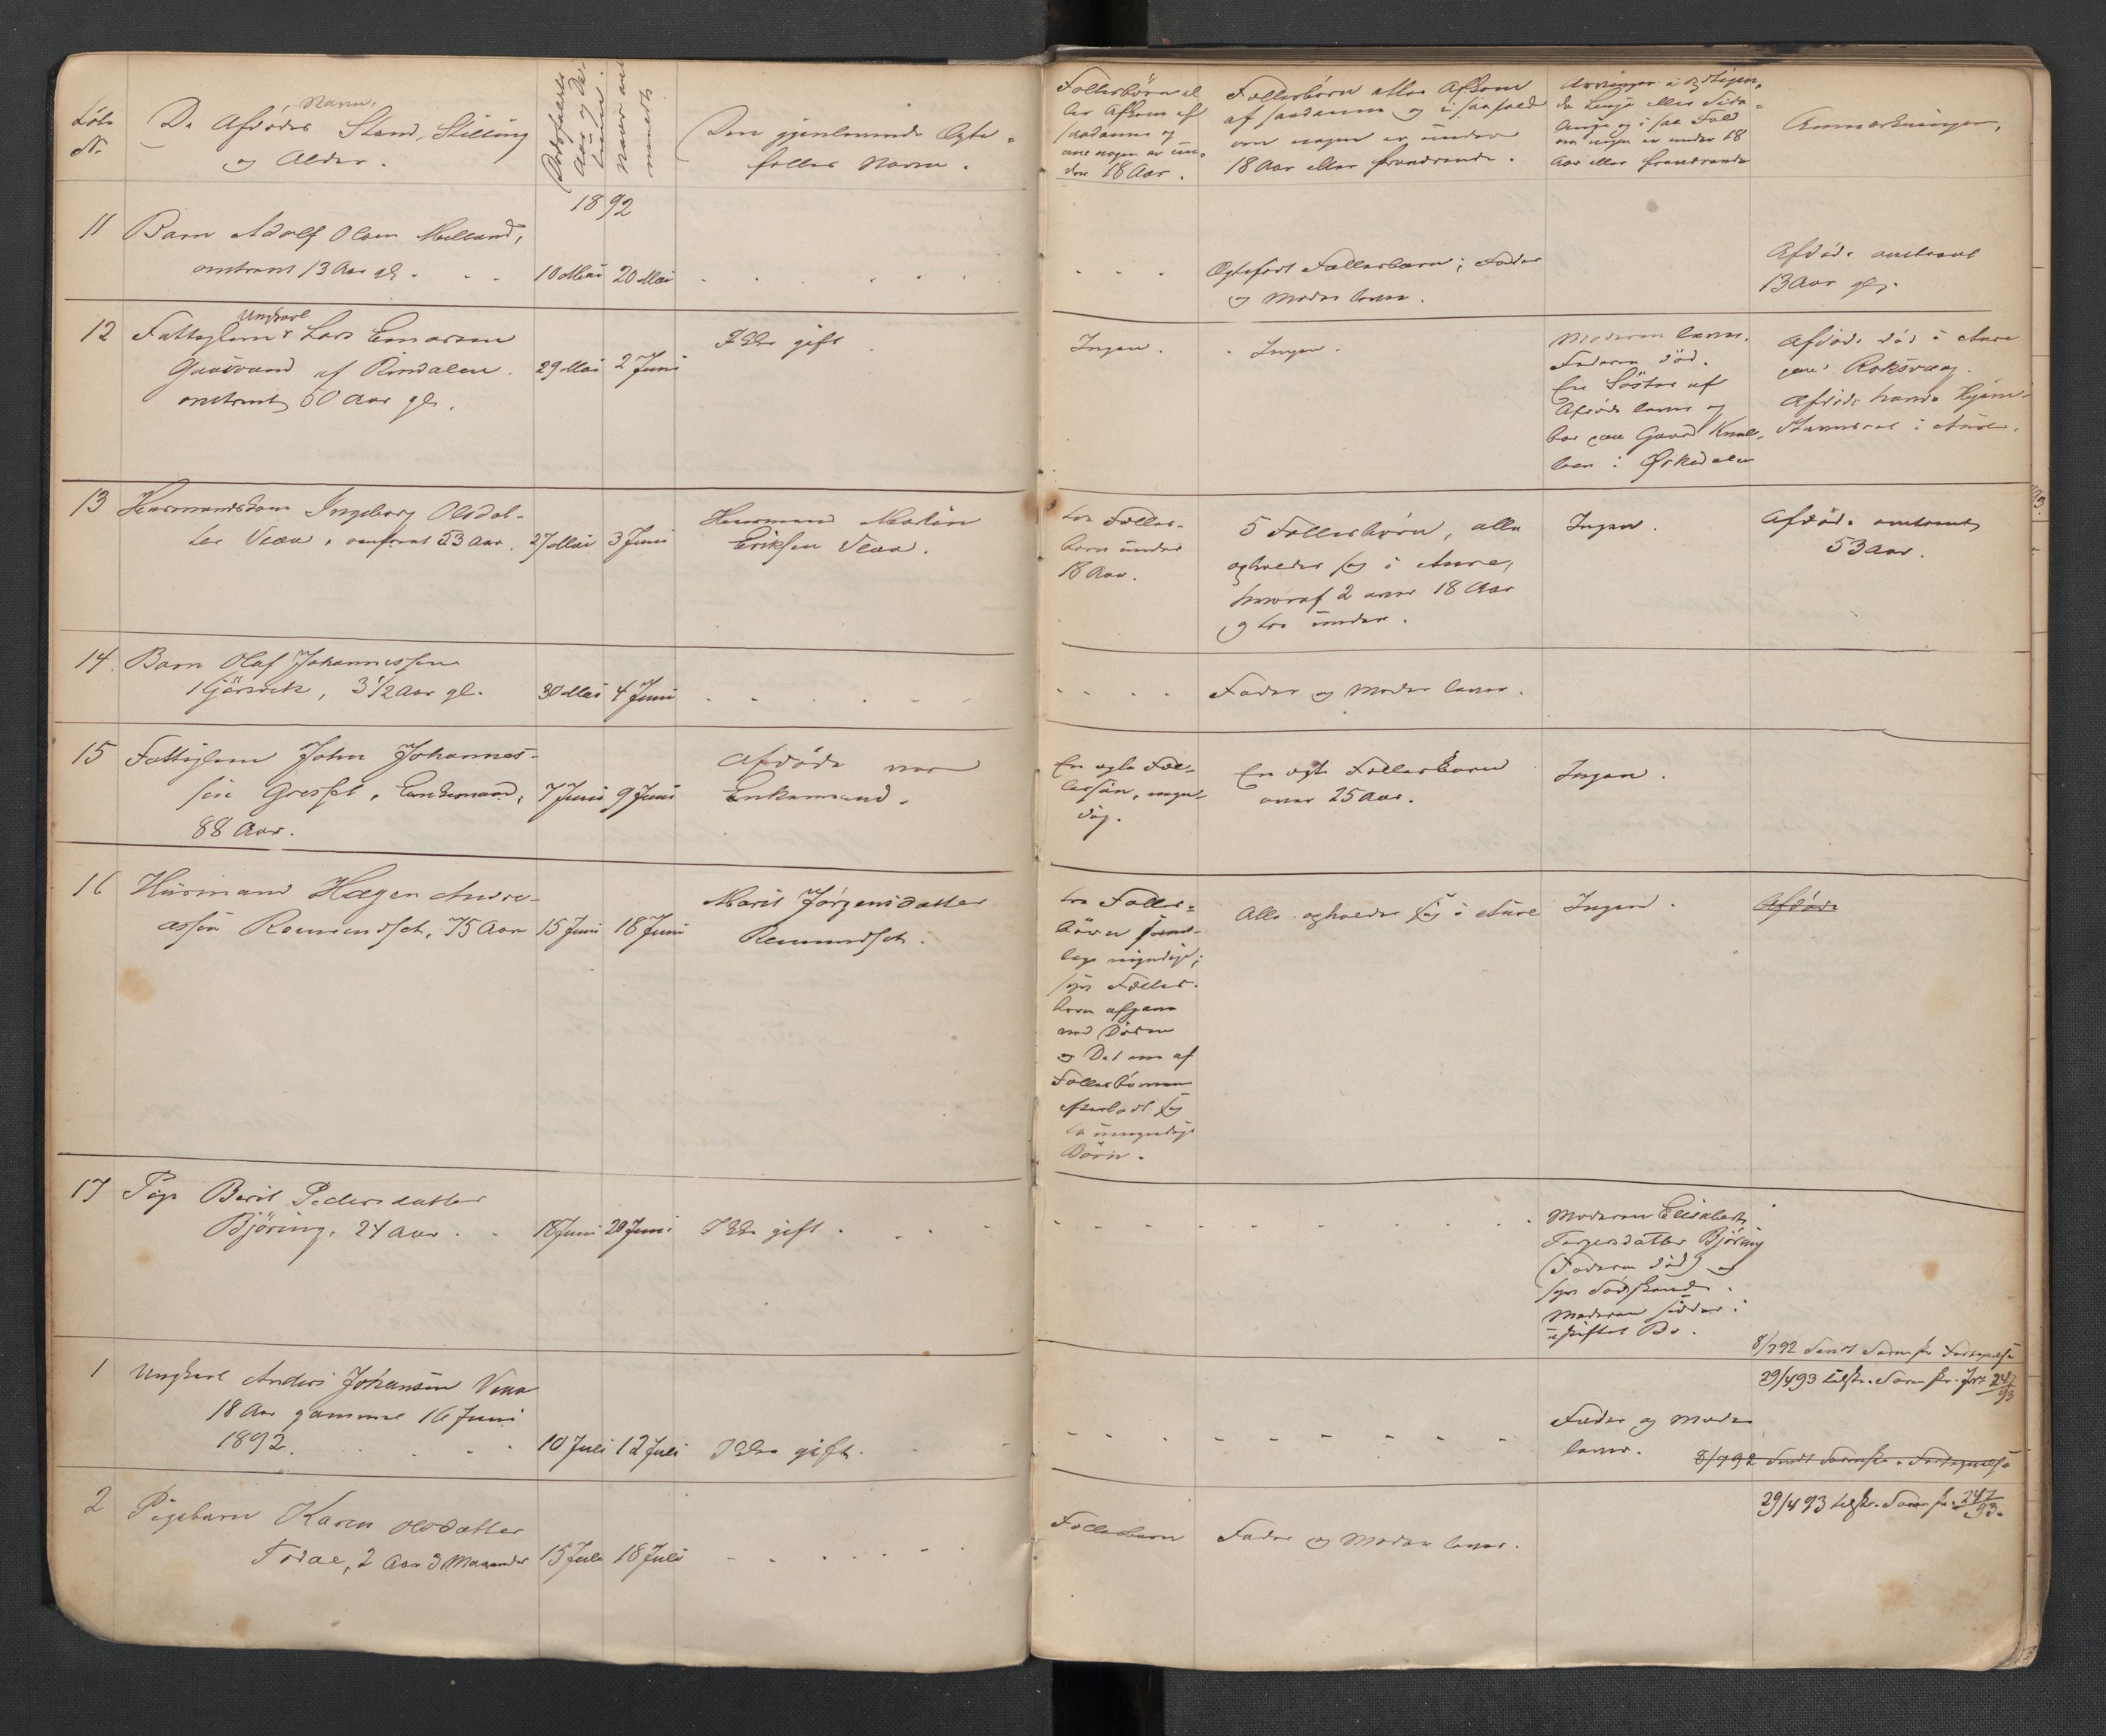 Løbe
No.
De Afdødes Navn, Stand, Stilling
og Alder.
Dødsfaldets
Aar og Da-
tum.
Naar an-
meldt
Den gjenlevende Ægte-
fælles Navn.
Fællesbörn el-
ler Afkom af
saadanne og
om nogen er un-
der 18 Aar.
Fællesbörn eller Afkom
af saadanne og i saafald
om nogen er under
18 Aar eller fraværende.
Arvinger i opstigen-
de Linje eller Side-
linje og i saa Fald
om nogen er under 18
Aar eller fraværende
Anmærkninger.
1892
11 Barn Adolf Olsen Melland,
omtrent 13 Aar gl. 10 Mai 20 Mai
Ægtefødt Fællesbarn; Fader
og Moder lever.
Afdøde omtrent
13 Aar gl.
12 Fattiglem Ungkarl Lars Einarsen
af Rindalen. 29 Mai 2 Juni
omtrent 60 Aar gl.
Ikke gift
Ingen.
Ingen.
Moderen lever.
Faderen död.
En Söster af
Afdöde lever og
bor paa Gaard
i Örkedalen
Afdöde död i Aure
paa Roksvaag.
Afdöde havde Hjem-
i Aure.
13 Husmandskone Ingeborg Olsdat-
ter Vean, omtrent 53 Aar. 27 Mai 3 Juni
Husmand Martin
Eriksen Vean.
tre Fælles-
børn under
18 Aar.
5 Fællesbørn, alle
opholder sig i Aure,
hvoraf 2 over 18 Aar
og tre under.
Ingen.
Afdöde omtrent
53 Aar.
14. Barn Olaf Johannessen
Kjörsvik, 3 1/2 Aar gl. 30 Mai 4 Juni
Fader og Moder lever.
15 Fattiglem John Johannes-
sen Gresset, Enkemand, 7 Juni 9 Juni
88 Aar.
Afdöde var
Enkemand.
En ægte Fæl-
lessön, myn-
dig.
En ægte Fællesbarn
over 25 Aar.
Ingen.
16 Husmand Hagen Andre-
assen Romundset, 75 Aar 15 Juni 18 Juni
Marit Jörgensdatter
Romundset.
tre Fælles-
börn sam-
lige myndige;
syv Fælles-
börn afgaaet
ved Döden
og det ene af
Fællesbörnene
efterladt sig
to umyndige
Börn.
Alle opholder sig i Aure
Ingen.
Afdöde
17 Pige Berit Pedersdatter
Björing, 24 Aar. 18 Juni 20 Juni Ikke gift.
Moderen Elisabeth
Torgersdatter Björing
(Faderen död) og
syv Södskende.
Moderen sidder i
uskiftet Bo.
8/7 92 Sendt Sorenskr. Fortegnelse
29/4 93 tilskr. Sorenskr. Jrn 247/93
1 Ungkarl Anders Johansen Vean
18 Aar gammel 16 Juni
1892. 10 Juli 12 Juli Ikke gift.
Fader og Moder
lever.
8/7 92 Sendt Sorenskr. Fortegnelse
2 Pigebarn Karen Olsdatter
Todal, 2 Aar 3 Maaneder 15 Juli 18 Juli
Fællesbarn Fader og Moder lever.
29/4 93 tilskr. Sorenskr. 247/93.